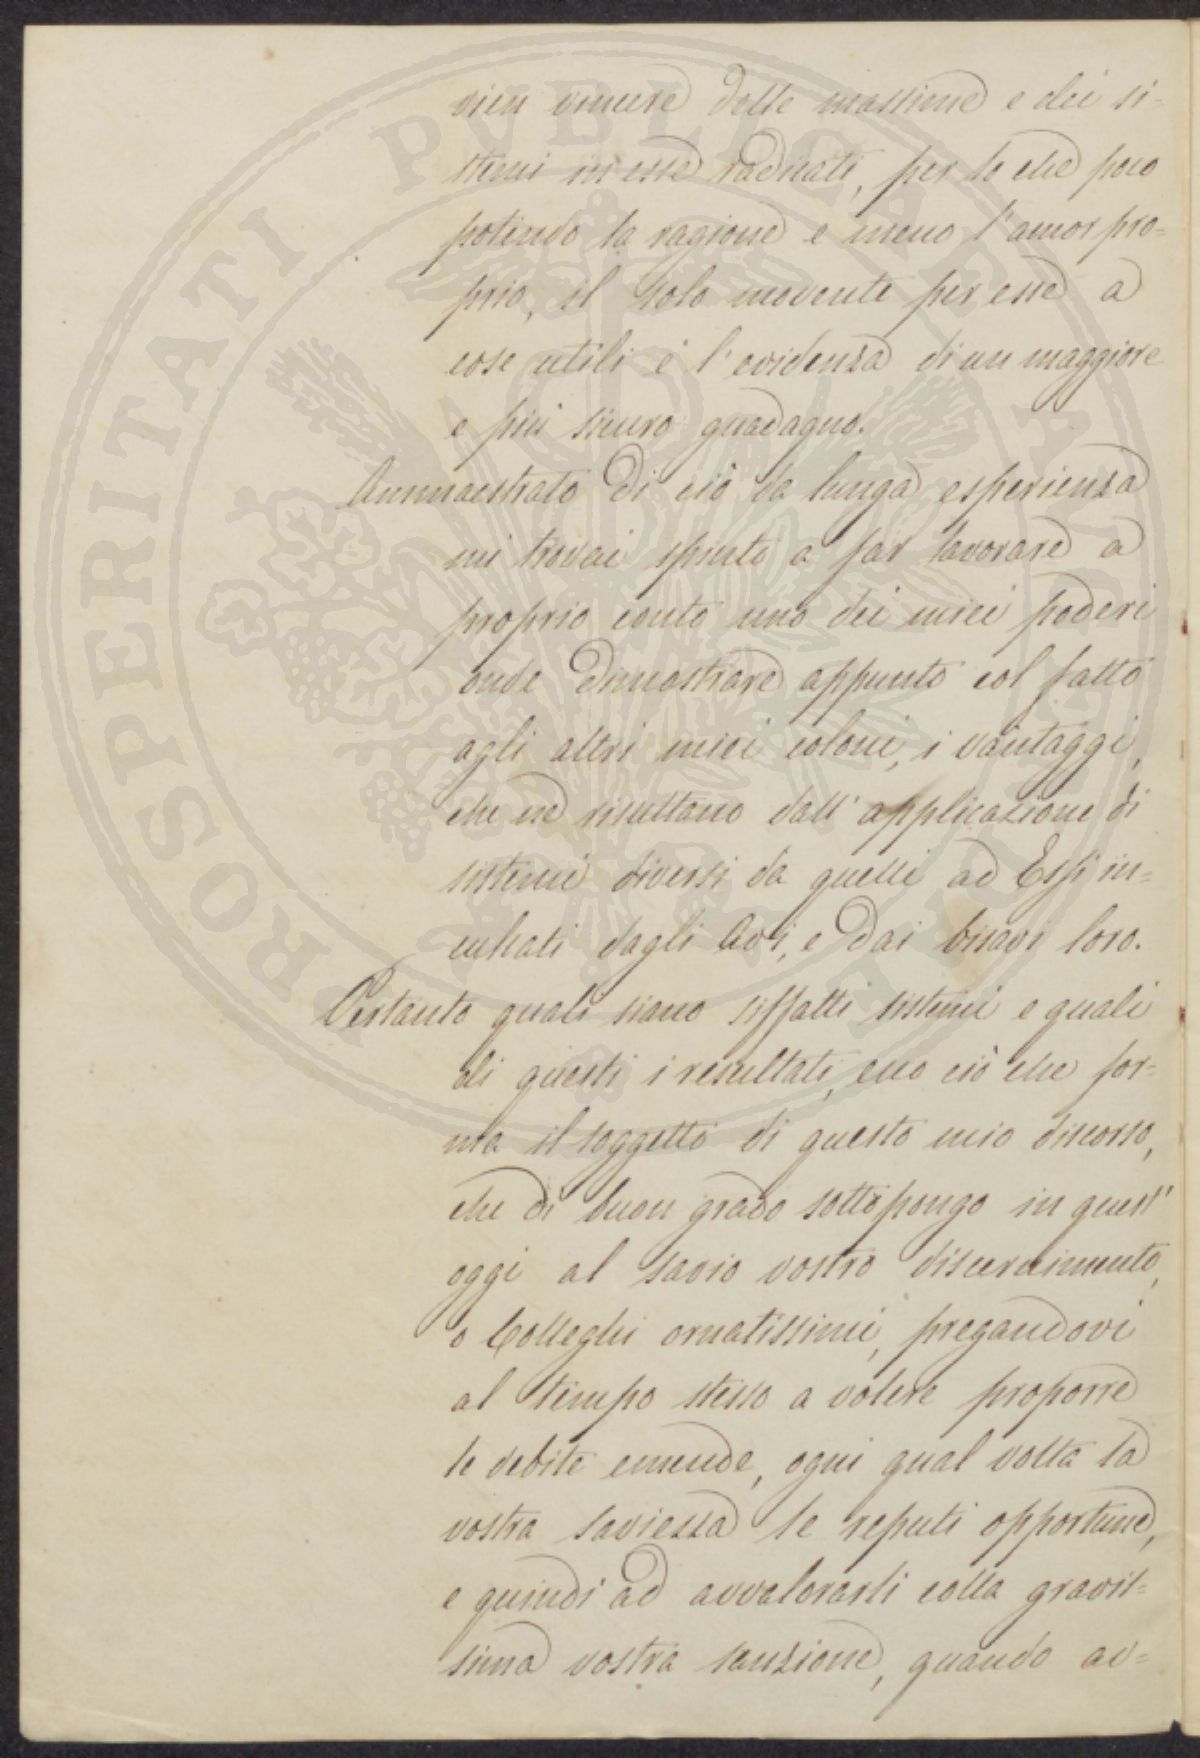 vien vincere delle massime e dei si=
stemi in esse radicati, per lo che poco
potendo la ragione e meno l'amor pro=
prio, il solo movente per esse a
cose utili è l'evidenza di un maggiore
e più sicuro guadagno.
Ammaestrato di ciò da lunga esperienza
mi trovai spinto a far lavorare a
proprio conto uno dei miei poderi
onde dimostrare appunto col fatto
agli altri miei coloni, i vantaggi,
che ne risultano dall'applicazione di
sistemi diversi da quelli ad Essi in=
culcati dagli Avi, e dai bisavi loro.
Pertanto quali siano siffatti sistemi e quali
di questi i resultati, ecco ciò che for=
ma il soggetto di questo mio discorso,
che di buon grado sottopongo in quest'
oggi al savio vostro discernimento,
o Colleghi ornatissimi, pregandovi
al tempo stesso a volere proporre
le debite emende, ogni qual volta la
vostra saviezza le reputi opportune,
e quindi ad avvalorarli colla gravis=
sima vostra sanzione, quando av=
PROSPERITATI PUBLICAE AUGENDAE